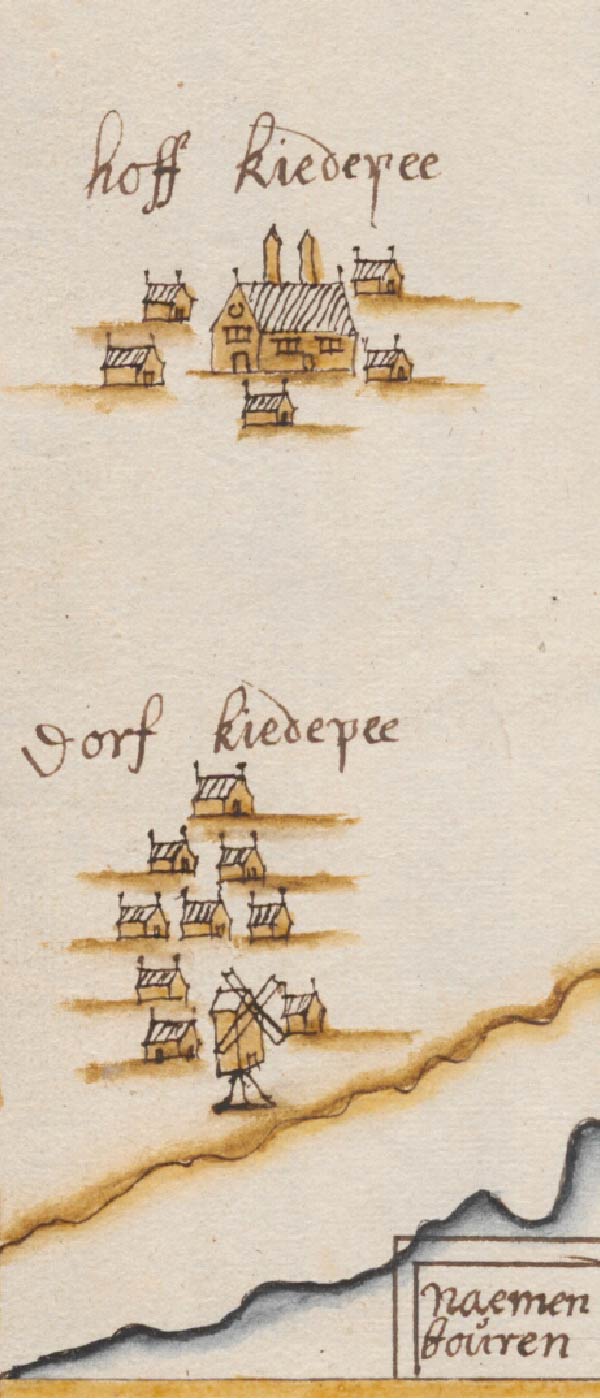 hoff kiedepee
dorf kiedepee
Naemen
boüren